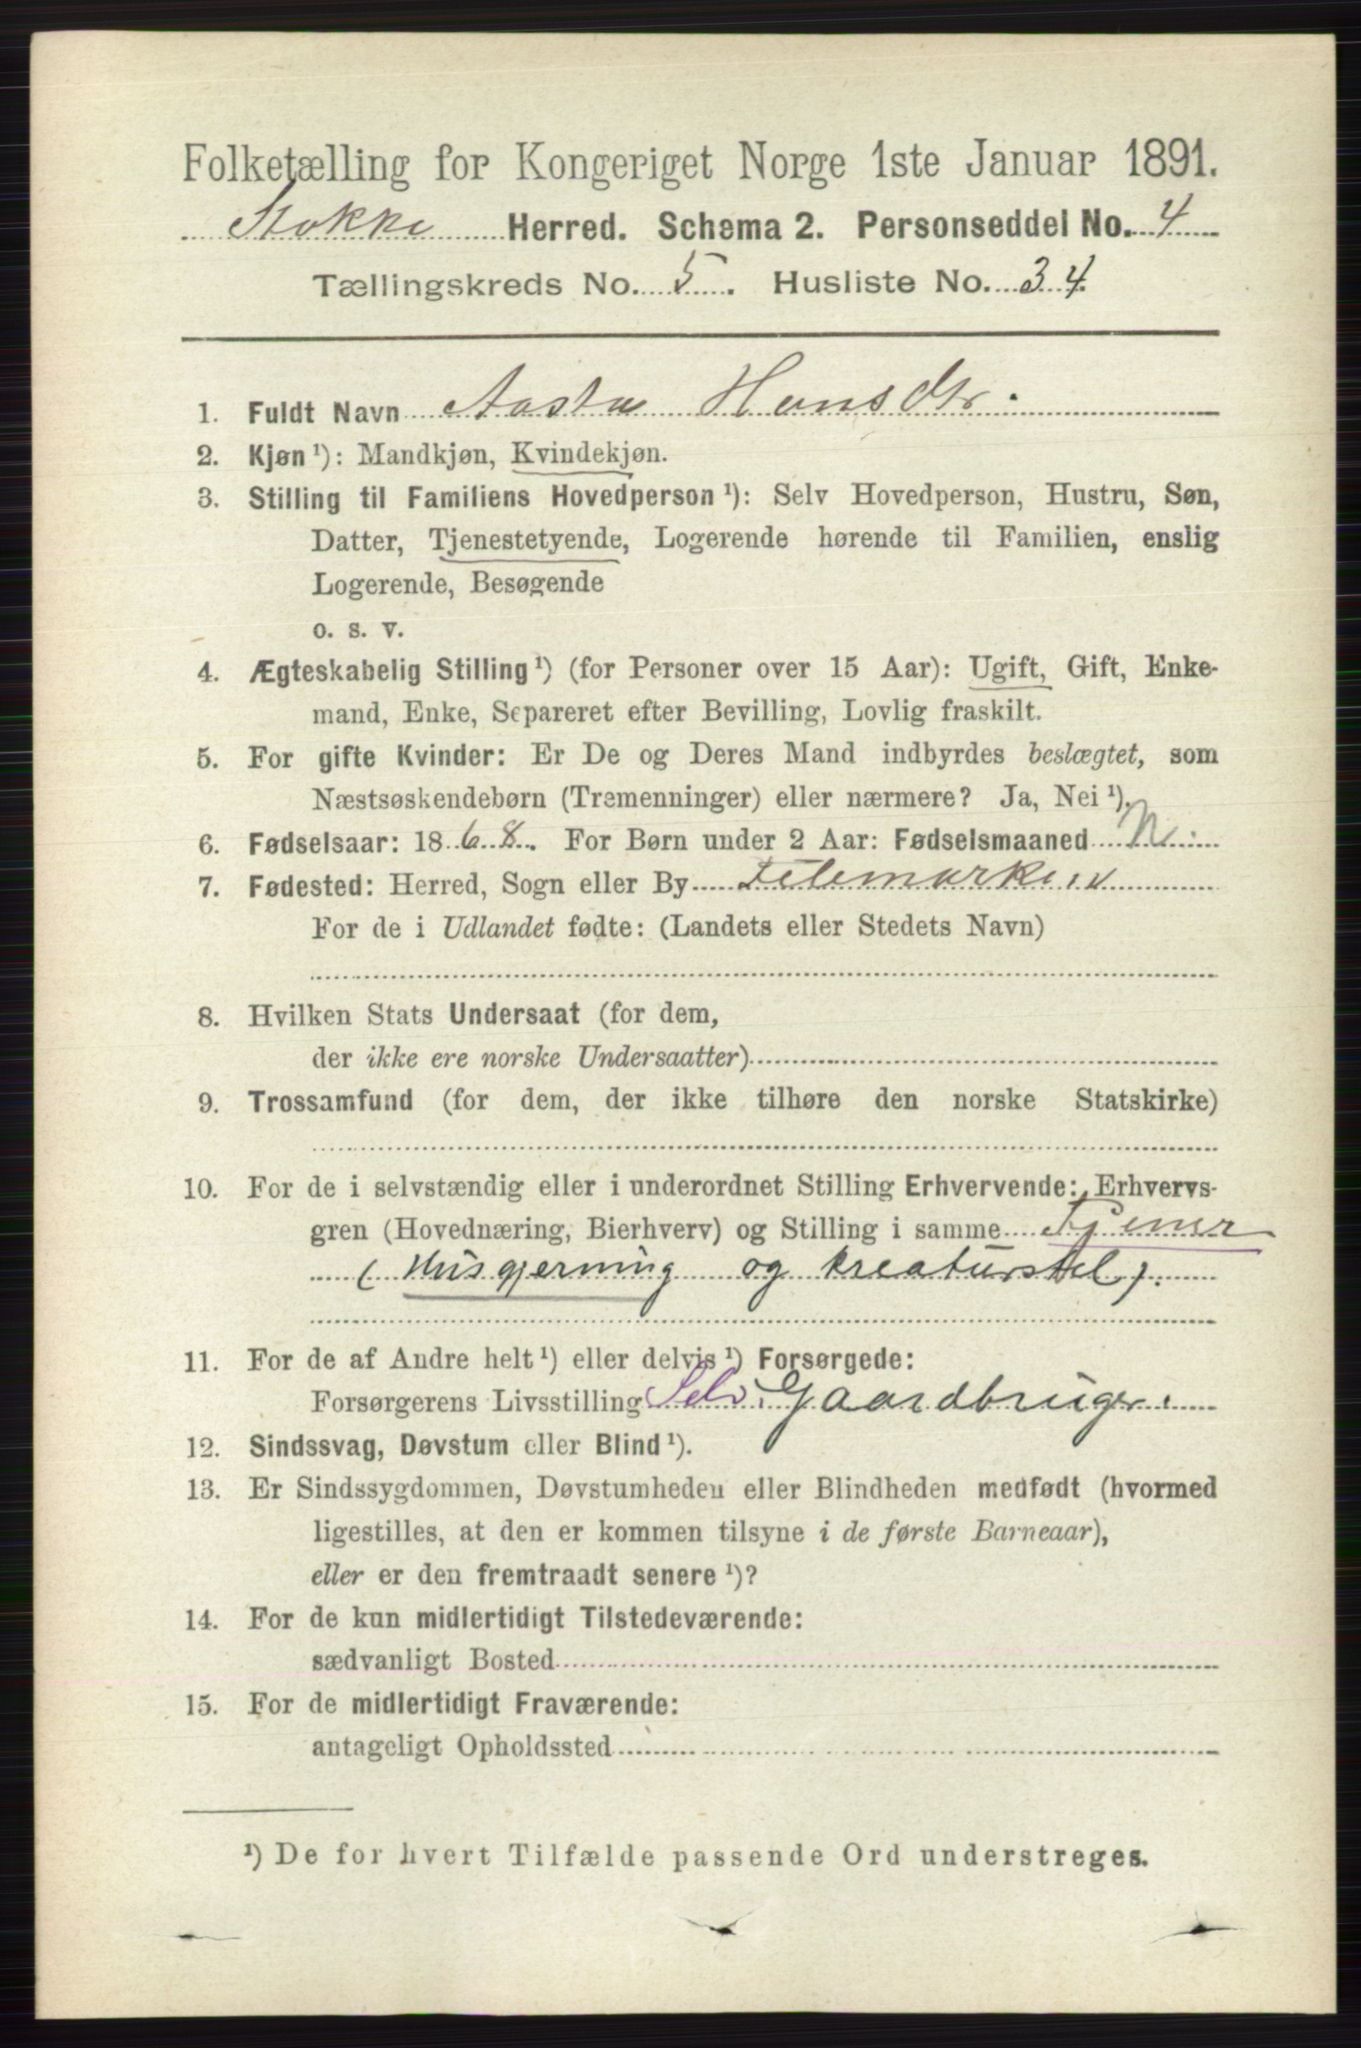 Folketælling for Kongeriget Norge 1ste Januar 1891.
Stokke Herred. Schema 2. Personseddel No. 4
Tællingskreds No. 5. Husliste No. 34
1. Fuldt Navn Aasta Hansdtr.
2. Kjøn ¹): Mandkjøn, Kvindekjøn.
3. Stilling til Familiens Hovedperson ¹): Selv Hovedperson, Hustru, Søn,
Datter, Tjenestetyende, Logerende hørende til Familien, enslig
Logerende, Besøgende
o. s. v.
4. Ægteskabelig Stilling ¹) (for Personer over 15 Aar): Ugift, Gift, Enke-
mand, Enke, Separeret efter Bevilling, Lovlig fraskilt.
5. For gifte Kvinder: Er De og Deres Mand indbyrdes beslægtet, som
Næstsøskendebørn (Tremenninger) eller nærmere? Ja, Nei ¹).
6. Fødselsaar: 1868. For Børn under 2 Aar: Fødselsmaaned N.
7. Fødested: Herred, Sogn eller By Telemarken
For de i Udlandet fødte: (Landets eller Stedets Navn)
8. Hvilken Stats Undersaat (for dem,
der ikke ere norske Undersaatter)
9. Trossamfund (for dem, der ikke tilhøre den norske Statskirke)
10. For de i selvstændig eller i underordnet Stilling Erhvervende: Erhvervs-
gren (Hovednæring, Bierhverv) og Stilling i samme Tjener
(Husgjerning og kreaturstel).
11. For de af Andre helt ¹) eller delvis ¹) Forsørgede:
Forsørgerens Livsstilling Selv. Gaardbruger.
12. Sindssvag, Døvstum eller Blind ¹).
13. Er Sindssygdommen, Døvstumheden eller Blindheden medfødt (hvormed
ligestilles, at den er kommen tilsyne i de første Barneaar),
eller er den fremtraadt senere ¹)?
14. For de kun midlertidigt Tilstedeværende:
sædvanligt Bosted
15. For de midlertidigt Fraværende:
antageligt Opholdssted
¹) De for hvert Tilfælde passende Ord understreges.